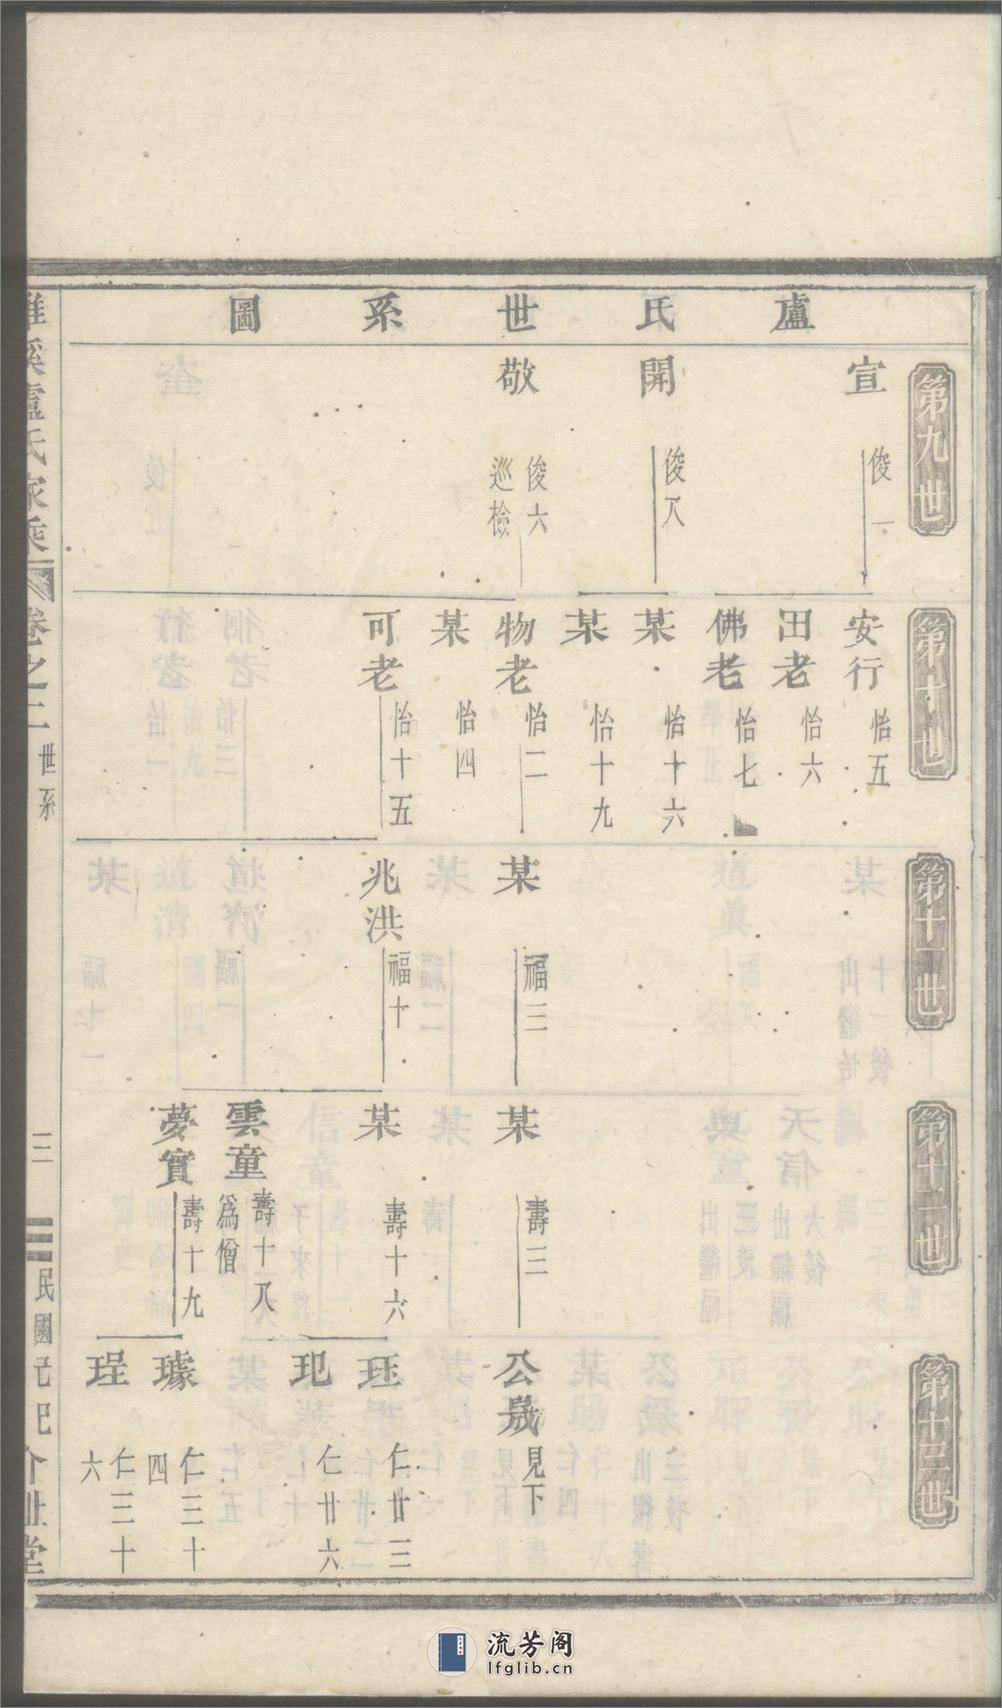 盧氏世系圖
第九世
宣 俊一
開 俊八
敬 俊六 巡檢
第十世
安行 怡五
田老 怡六
佛老 怡七
某 怡十六
某 怡十九
物老 怡二
某 怡四
可老 怡十五
第十一世
某 福三
兆洪 福十
第十二世
某 壽三
某 壽十六
雲童 壽十八 爲僧
夢實 壽十九
第十三世
公晟 見下
玨 仁廿三
玘 仁廿六
璩 仁三十四
珵 仁三十六
溪盧氏家乘 卷之二 世系 三 民國己巳
流芳阁
lfglib.cn